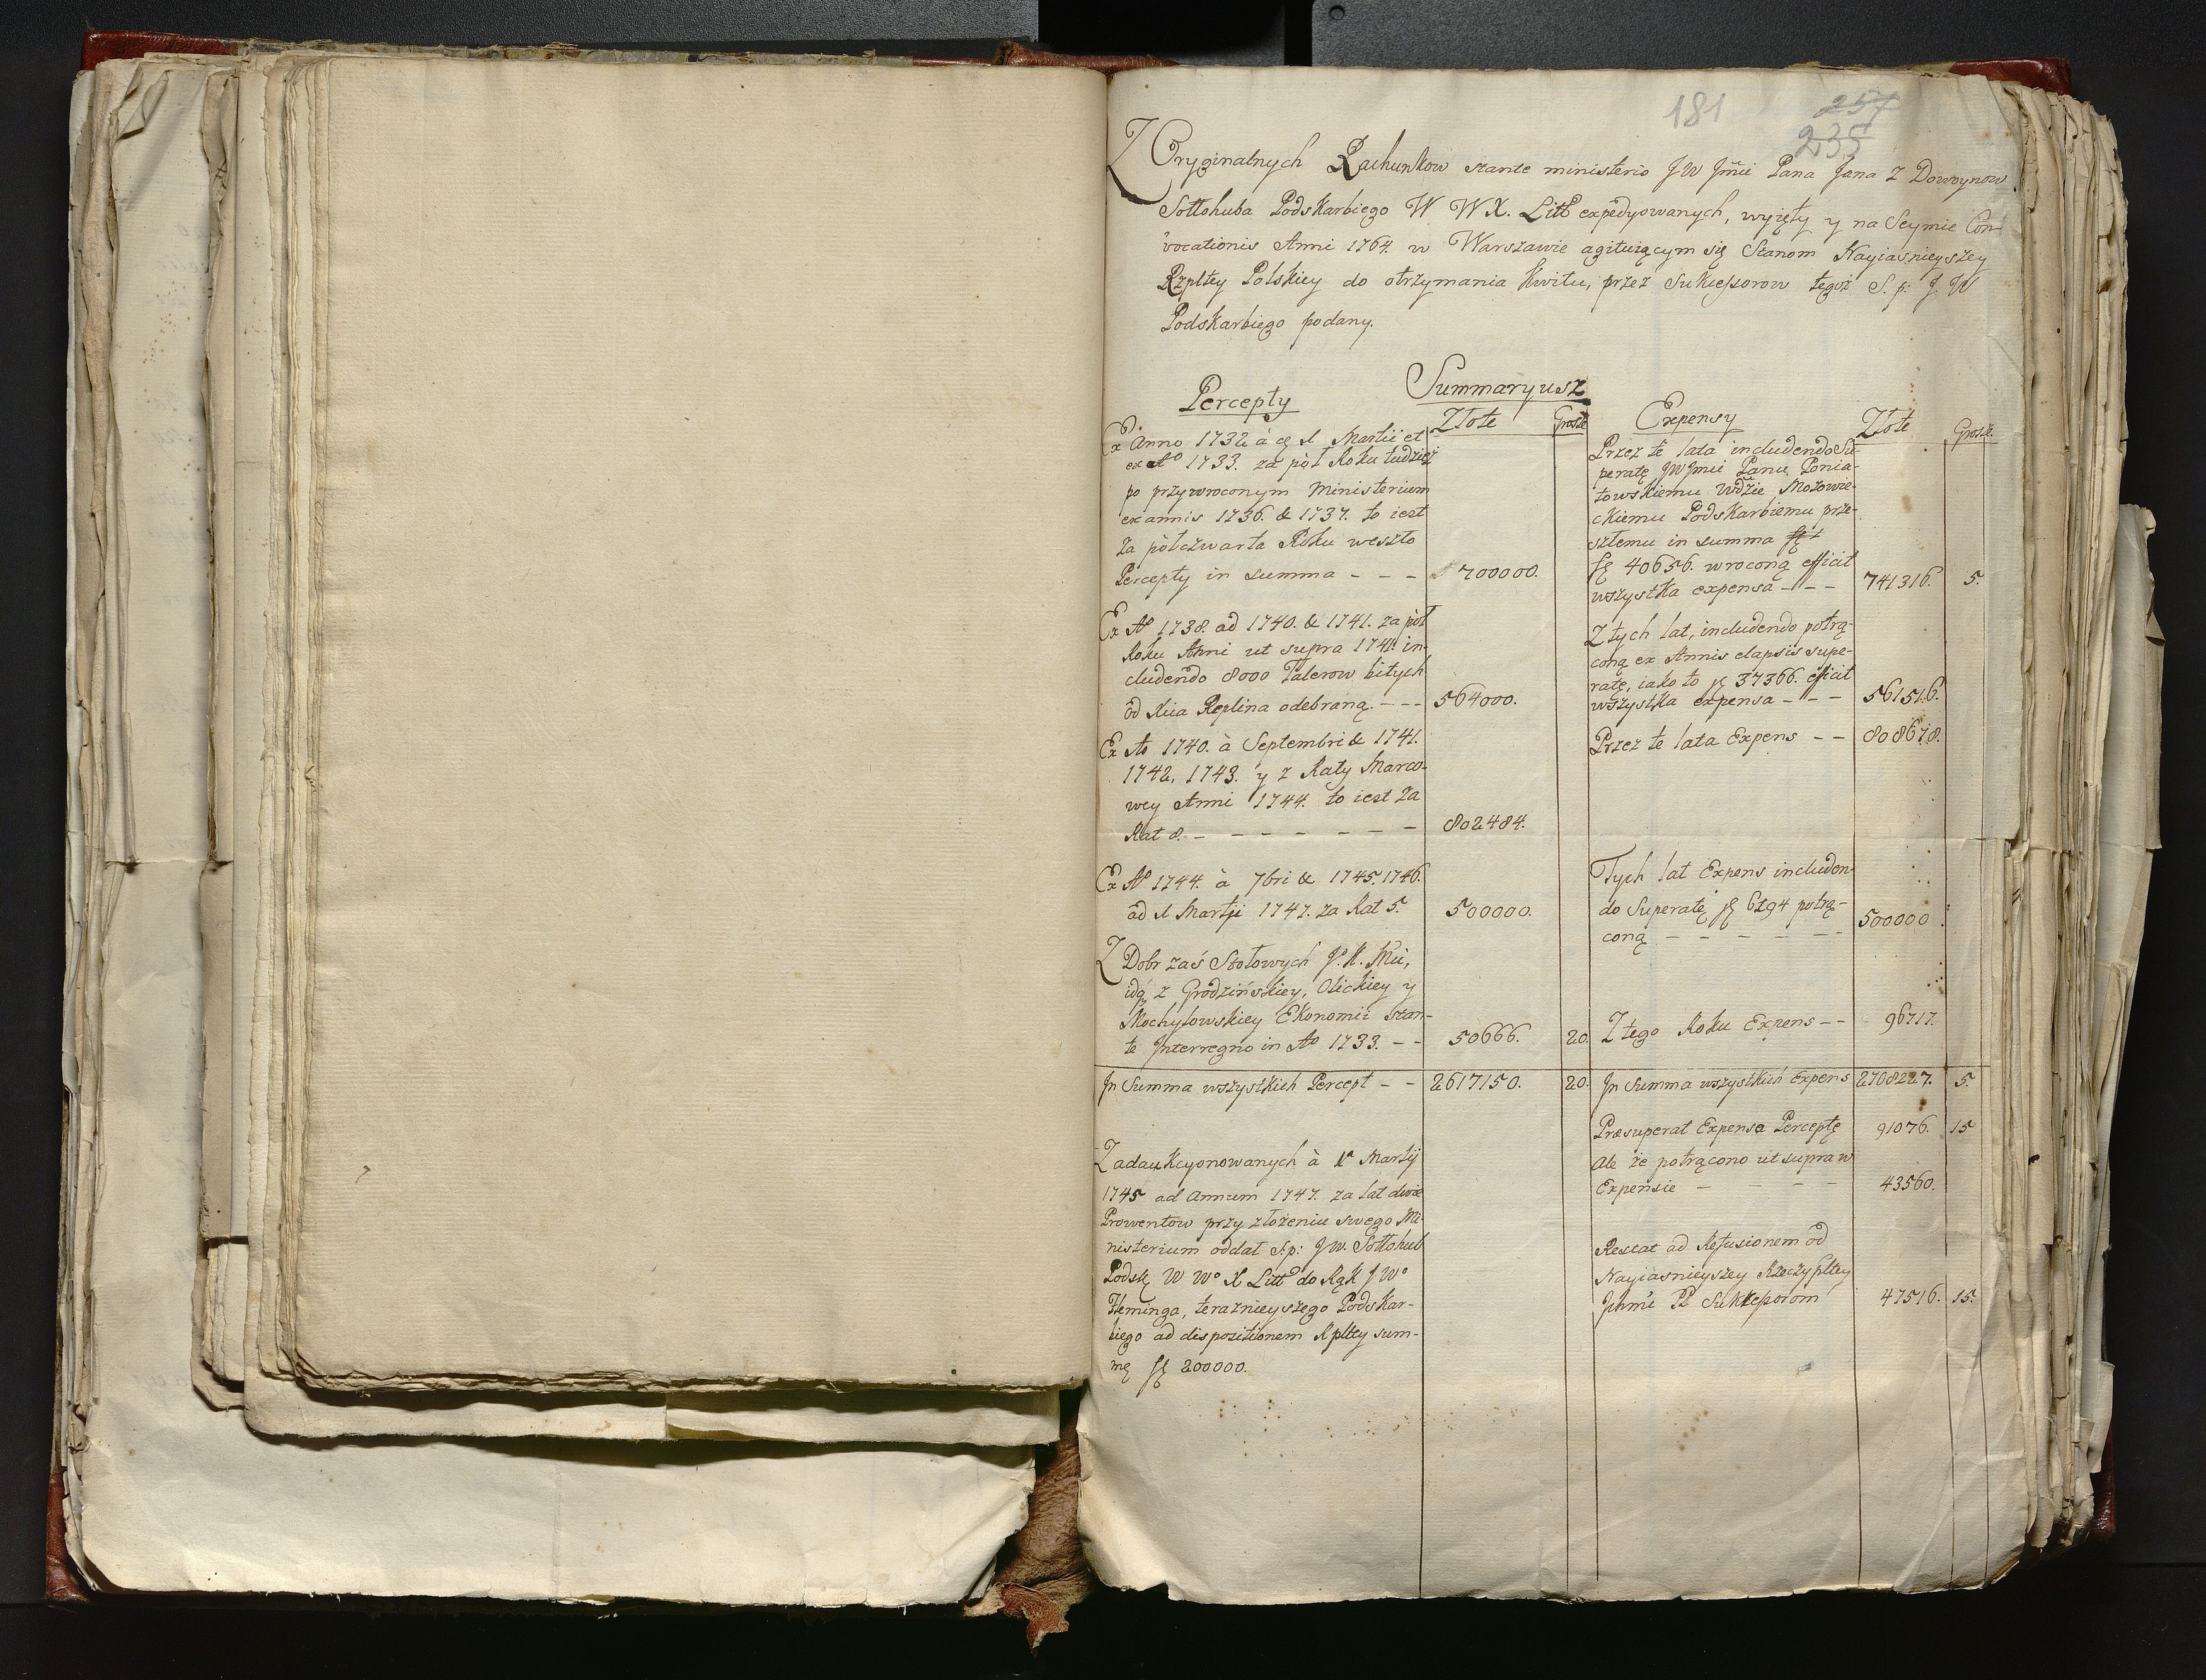 181
257
235
Z Oryginalnych Rachunkow stante ministerio JW Jmći Pana Jana z Dowoynow
Sołłohuba Podskarbiego W W X. Litt expedyowanych, wyięty y na Seymie Con-
vocationis Anni 1764. w Warszawie agituiącym się Stanom Nayiasnieyszey
Rzpltey Polskiey do otrzymania kwitu, przez Sukcessorow tegoż S. p: J. W
Podskarbiego podany.
Summaryusz
Percepty
Złote
Grosze
Expensy
Złote
Grosze
Ex Anno 1732 à Martii et
ex Aº 1733. za pół Roku tudzież
po przywroconym Ministerium
ex annis 1736. & 1737. to iest
za półczwarta Roku weszło
Percepty in summa - - - 700000.
Przez te lata includendo Su-
peratę JW Jmći Panu Ponia-
towskiemu Wdzie Mazowie-
ckiemu Podskarbiemu prze-
szłemu in summa
40656. wroconą efficit
wszystka expensa - - - 741316. 5.
Ex Aº 1738. ad 1740. & 1741. za pół
Roku Anni ut supra 1741. in-
cludendo 8000 Talerow bitych
od Xcia Replina odebraną. - - - 564000.
Z tych lat, includendo potrą-
coną ex Annis elapsis supe-
ratę, iako to 37366. efficit
wszystka expensa - - - 561516.
Ex Ao 1740. à Septembri & 1741.
1742, 1743. y z Raty Marco-
wey Anni 1744. to iest za
Rat 8. - - - - - - - 802484.
Przez te lata Expens - - 808678.
Ex Aº 1744. à 7bri & 1745. 1746.
ad Martji 1747. za Rat 5. 500000.
Tych lat Expens includen-
do Superatę 6194 potrą-
coną - - - - - - 500000
Z Dobr zaś Stołowych J. K. Mci,
idq, z Grodzińskiey, Olickiey y
Mochylowskiey Ekonomii stan-
te Interregno in Aº 1733. - - 50666. 20.
Z tego Roku Expens - - 96717.
Jn Summa wszystkich Percept - - 2617150. 20.
Jn Summa wszystkich Expens 2708227. 5.
Præsuperat Expensa Perceptę 91076. 15
Ale że potrącono ut supra w
Expensie - - - - 43560.
Restat ad Refusionem od
Nayiasnieyszey Rzeczypltey
Jchmći PP Sukcessorom 47516. 15.
Zadaukcyonowanych à Martij
1745 ad Annum 1747. za lat dwie
Prowentow przy złożeniu swego Mi-
nisterium oddał S:p: JW. Sołłohub
Podsk W Wº X Litt do Rąk JWº
Fleminga, teraznieyszego Podskar-
biego ad dispositionem Rpltey sum-
mę 200000.